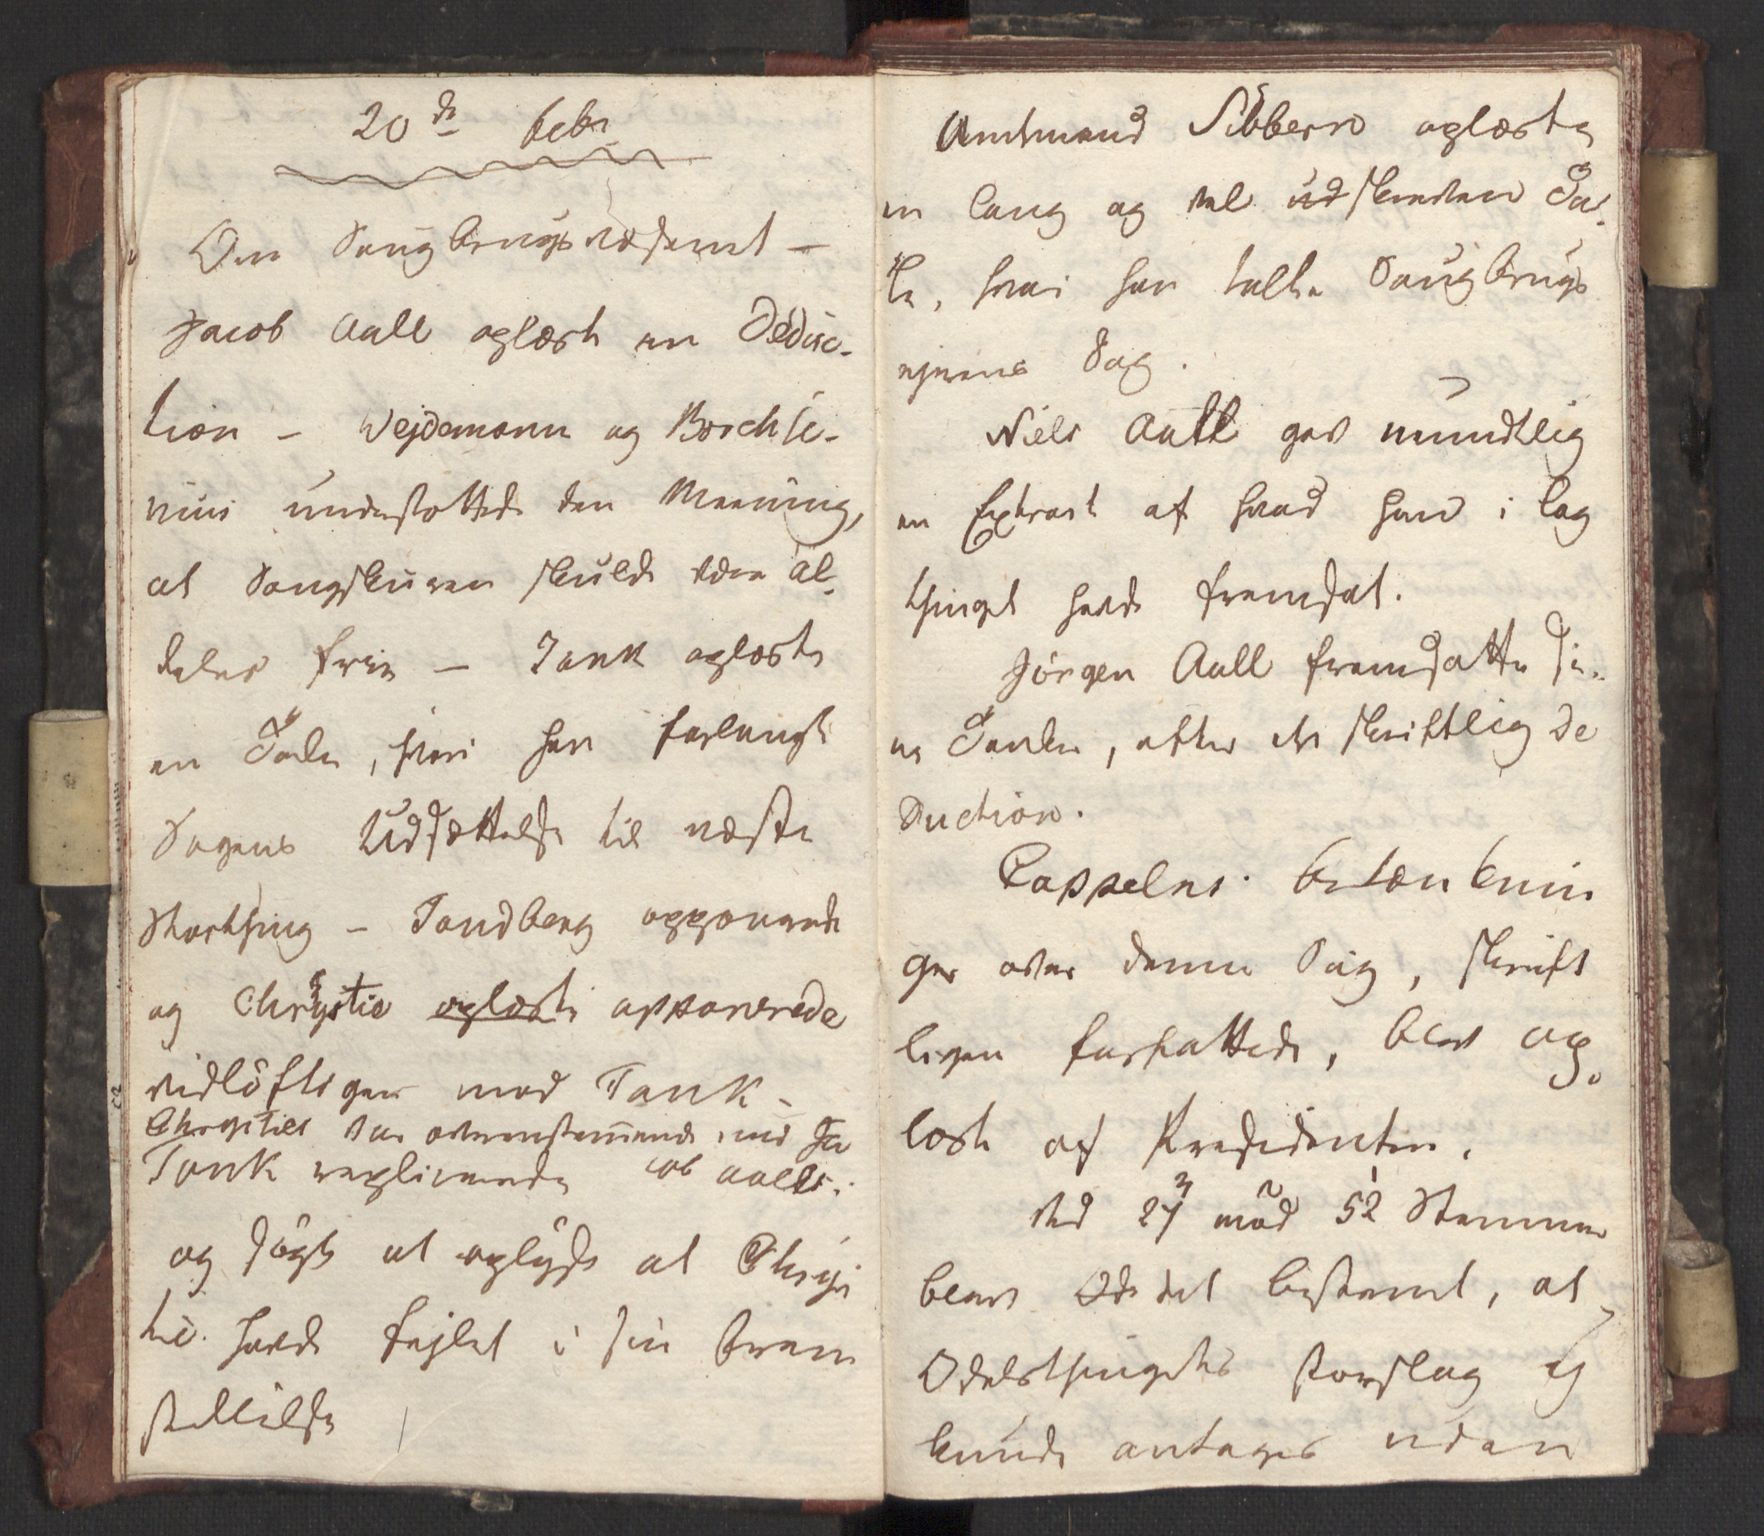 20de Febr
Om Saugbrugsvæsenet -
Jacob Aall oplæste en Deduc-
tion - Wejdemann og Borchse-
nius understøttede den Meening,
at Saugskuren skulde være al-
deles frie - Tank oplæste
en Tale, hvori han forlangte
Sagens Udsættelse til næste
Storthing - Tandberg opponerede
og Christie oplæste opponerede
vidløftigen mod Tank -
Christies var overensstemmende med Ja
cob Aalls.
Tank replicerede
og søgte at oplyse at Chryi
tie havde fejlet i sin Frem
stillelse
Amtmand Sibbern oplæste
en lang og vel udskreven Ta-
le, hvori han talte Saugbrugs
ejernes Sag.
Niels Aall gav mundtlig
en Extract af hvad han i Lag
thinget havde fremsat.
Jørgen Aall fremsatte si-
ne Tanker, efter en skriftlig De
duction.
Cappelns Betænknin
ger over denne Sag, skrift
ligen forfattede, blev op-
læst af Præsidenten.
Ved 27 mod 52 Stemmer
blev det bestemt, at
Odelsthingets Forslag ej
kunde antages uden